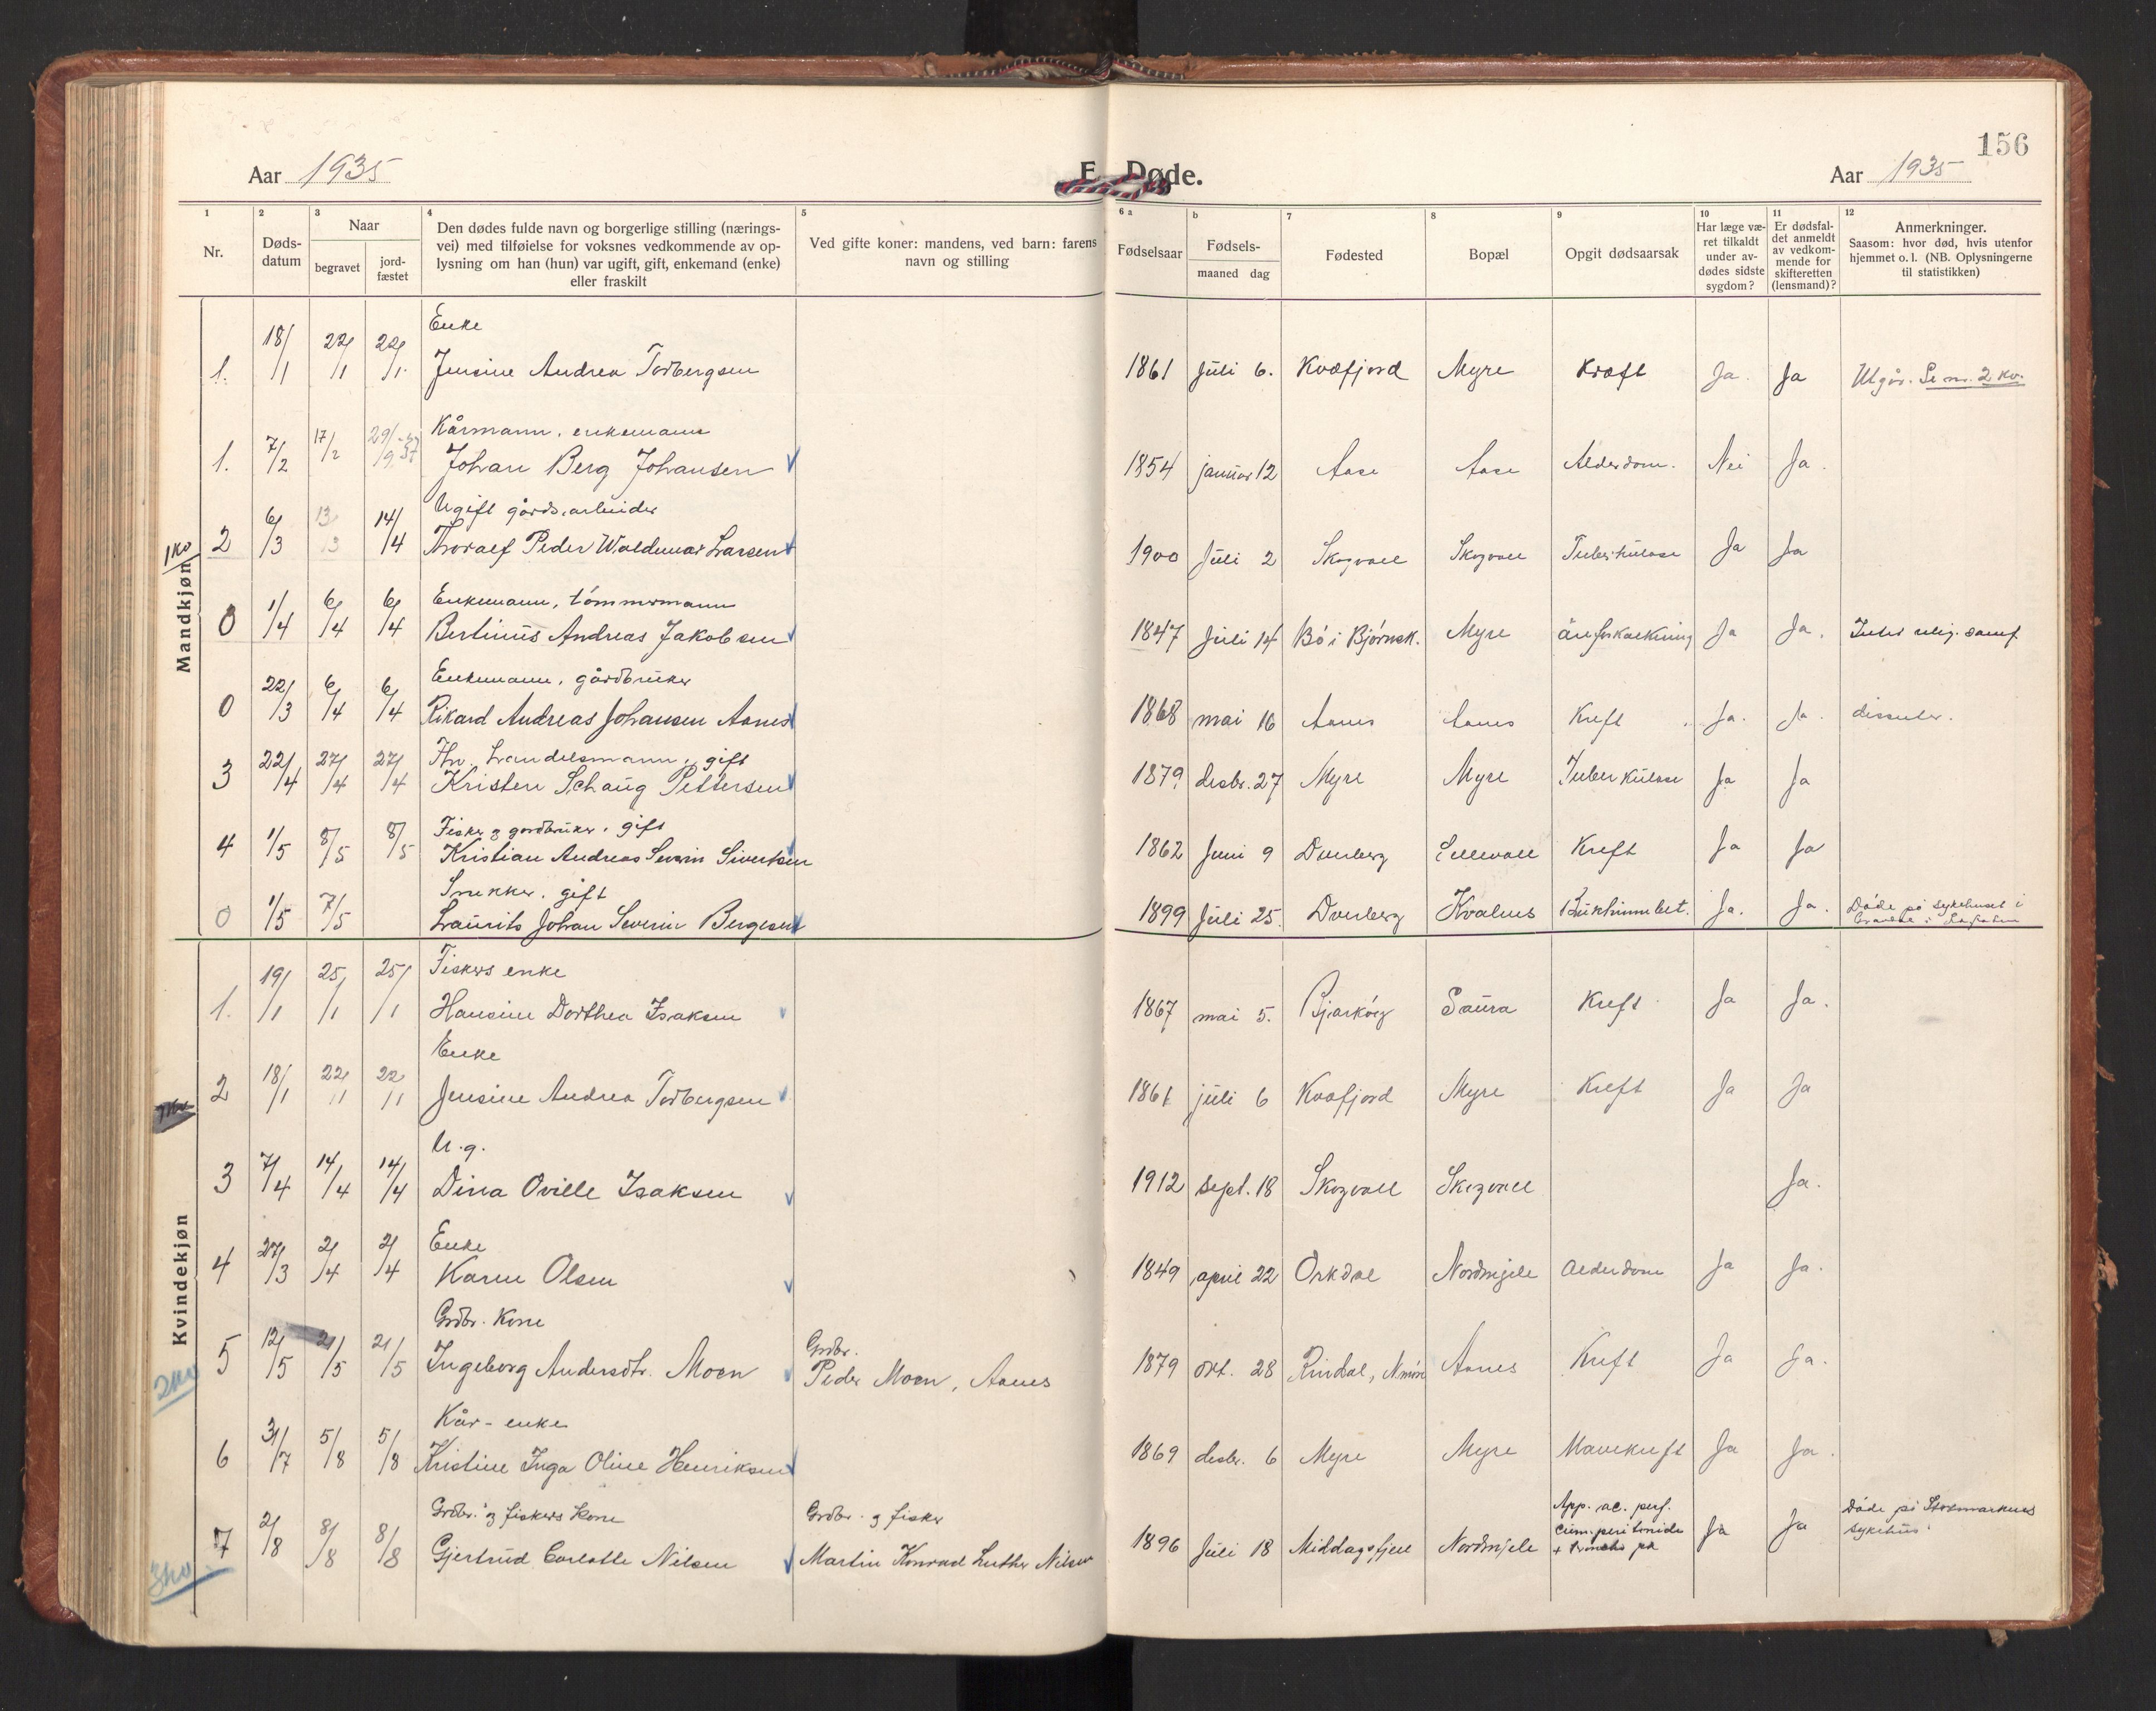 156
Aar 1935
E. Døde.
Aar 1935
1 Nr.
2 Døds-datum
3 Naar begravet jord-fæstet
4 Den dødes fulde navn og borgerlige stilling (nærings-
vei) med tilføielse for voksnes vedkommende av op-
lysning om han (hun) var ugift, gift, enkemand (enke)
eller fraskilt
5 Ved gifte koner: mandens, ved barn: farens
navn og stilling
6 a Fødselsaar
b Fødsels- maaned dag
7 Fødested
8 Bopæl
9 Opgit dødsaarsak
10 Har læge væ-
ret tilkaldt
under av-
dødes sidste
sygdom?
11 Er dødsfal-
det anmeldt
av vedkom-
mende for
skifteretten
(lensmand)?
12 Anmerkninger.
Saasom: hvor død, hvis utenfor
hjemmet o. l. (NB. Oplysningerne
til statistikken)
Mandkjøn
1 kv
Enke
1. 18/1 22/1 22/1 Jensine Andrea Torbergsen 1861 Juli 6. Kvæfjord Myre Kræft Ja. Ja Utgår. Se nr. 2 kv.
Kårmann, enkemann
1. 7/2 17/2 29/9-37 Johan Berg Johansen 1854 januar 12 Aase Aase Alderdom. Nei Ja.
Ugift gårdsarbeider
2 6/3 13/3 14/4 Thoralf Peder Waldemar Larsen 1900 Juli 2 Skogvoll Skogvoll Tuberkulose Ja Ja
Enkemann, tømmermann
0 1/4 6/4 6/4 Bertinus Andreas Jakobsen 1847 Juli 14 Bø i Bjørnsk. Myre åreforkalkning Ja Ja. Intet relig. samf.
Enkemann, gårdbruker
0 22/3 6/4 6/4 Rikard Andreas Johansen Aanes 1868 mai 16 Aanes Aanes Kreft Ja. Ja. dissenter.
Fhv. handelsmann, gift
3 22/4 27/4 27/4 Kristen Schaug Pettersen 1879 desbr. 27 Myre Myre Tuberkulose Ja Ja
Fisker og gardbruker, gift
4 1/5 8/5 8/5 Kristian Andreas Severin Sivertsen 1862 Juni 9 Dverberg Kreft Ja Ja
Snekker, gift
0 1/5 7/5 Laurits Johan Severin Bergesen 1899 Juli 25. Dverberg Kvalnes Bukhinnebet. Ja. Ja. Døde på sykehuset i
Gravdal i Lofoten
Kvindekjøn
Fiskers enke
1. 19/1 25/1 25/1 Hansine Dorthea Isaksen 1867 mai 5. Bjarkøy Saura Kreft Ja Ja.
Enke
2 18/1 22/1 22/1 Jensine Andrea Torbergsen 1861 juli 6 Kvæfjord Myre Kreft Ja Ja
U.g.
3 7/4 14/4 14/4 Dina Oville Isaksen 1912 sept. 18 Skogvoll Skogvoll Ja.
Enke
4 27/3 2/4 2/4 Karen Olsen 1849 april 22 Orkdal Nordmjele Alderdom Ja Ja.
Grdbr. kone
Grdbr.
5 12/5 21/5 21/5 Ingeborg Andersdtr. Moen Peder Moen, Aanes 1879 okt. 28 Rindal, N.møre Aanes Kreft Ja Ja.
2 kv
Kår-enke
6 31/7 5/8 5/8 Kristine Inga Oline Henriksen 1869 desbr. 6 Myre Myre Mavekreft Ja Ja.
Grdbr. og fiskers kone
Grdbr. og fisker
7 2/8 8/8 8/8 Gjertrud Carlotte Nilsen Martin Konrad Luther Nilsen 1896 Juli 18 Middagsfjell Nordmjele App. ac. perf.
cum. peritonide Ja Ja Døde på Stokmarknes
sykehus
3 kv